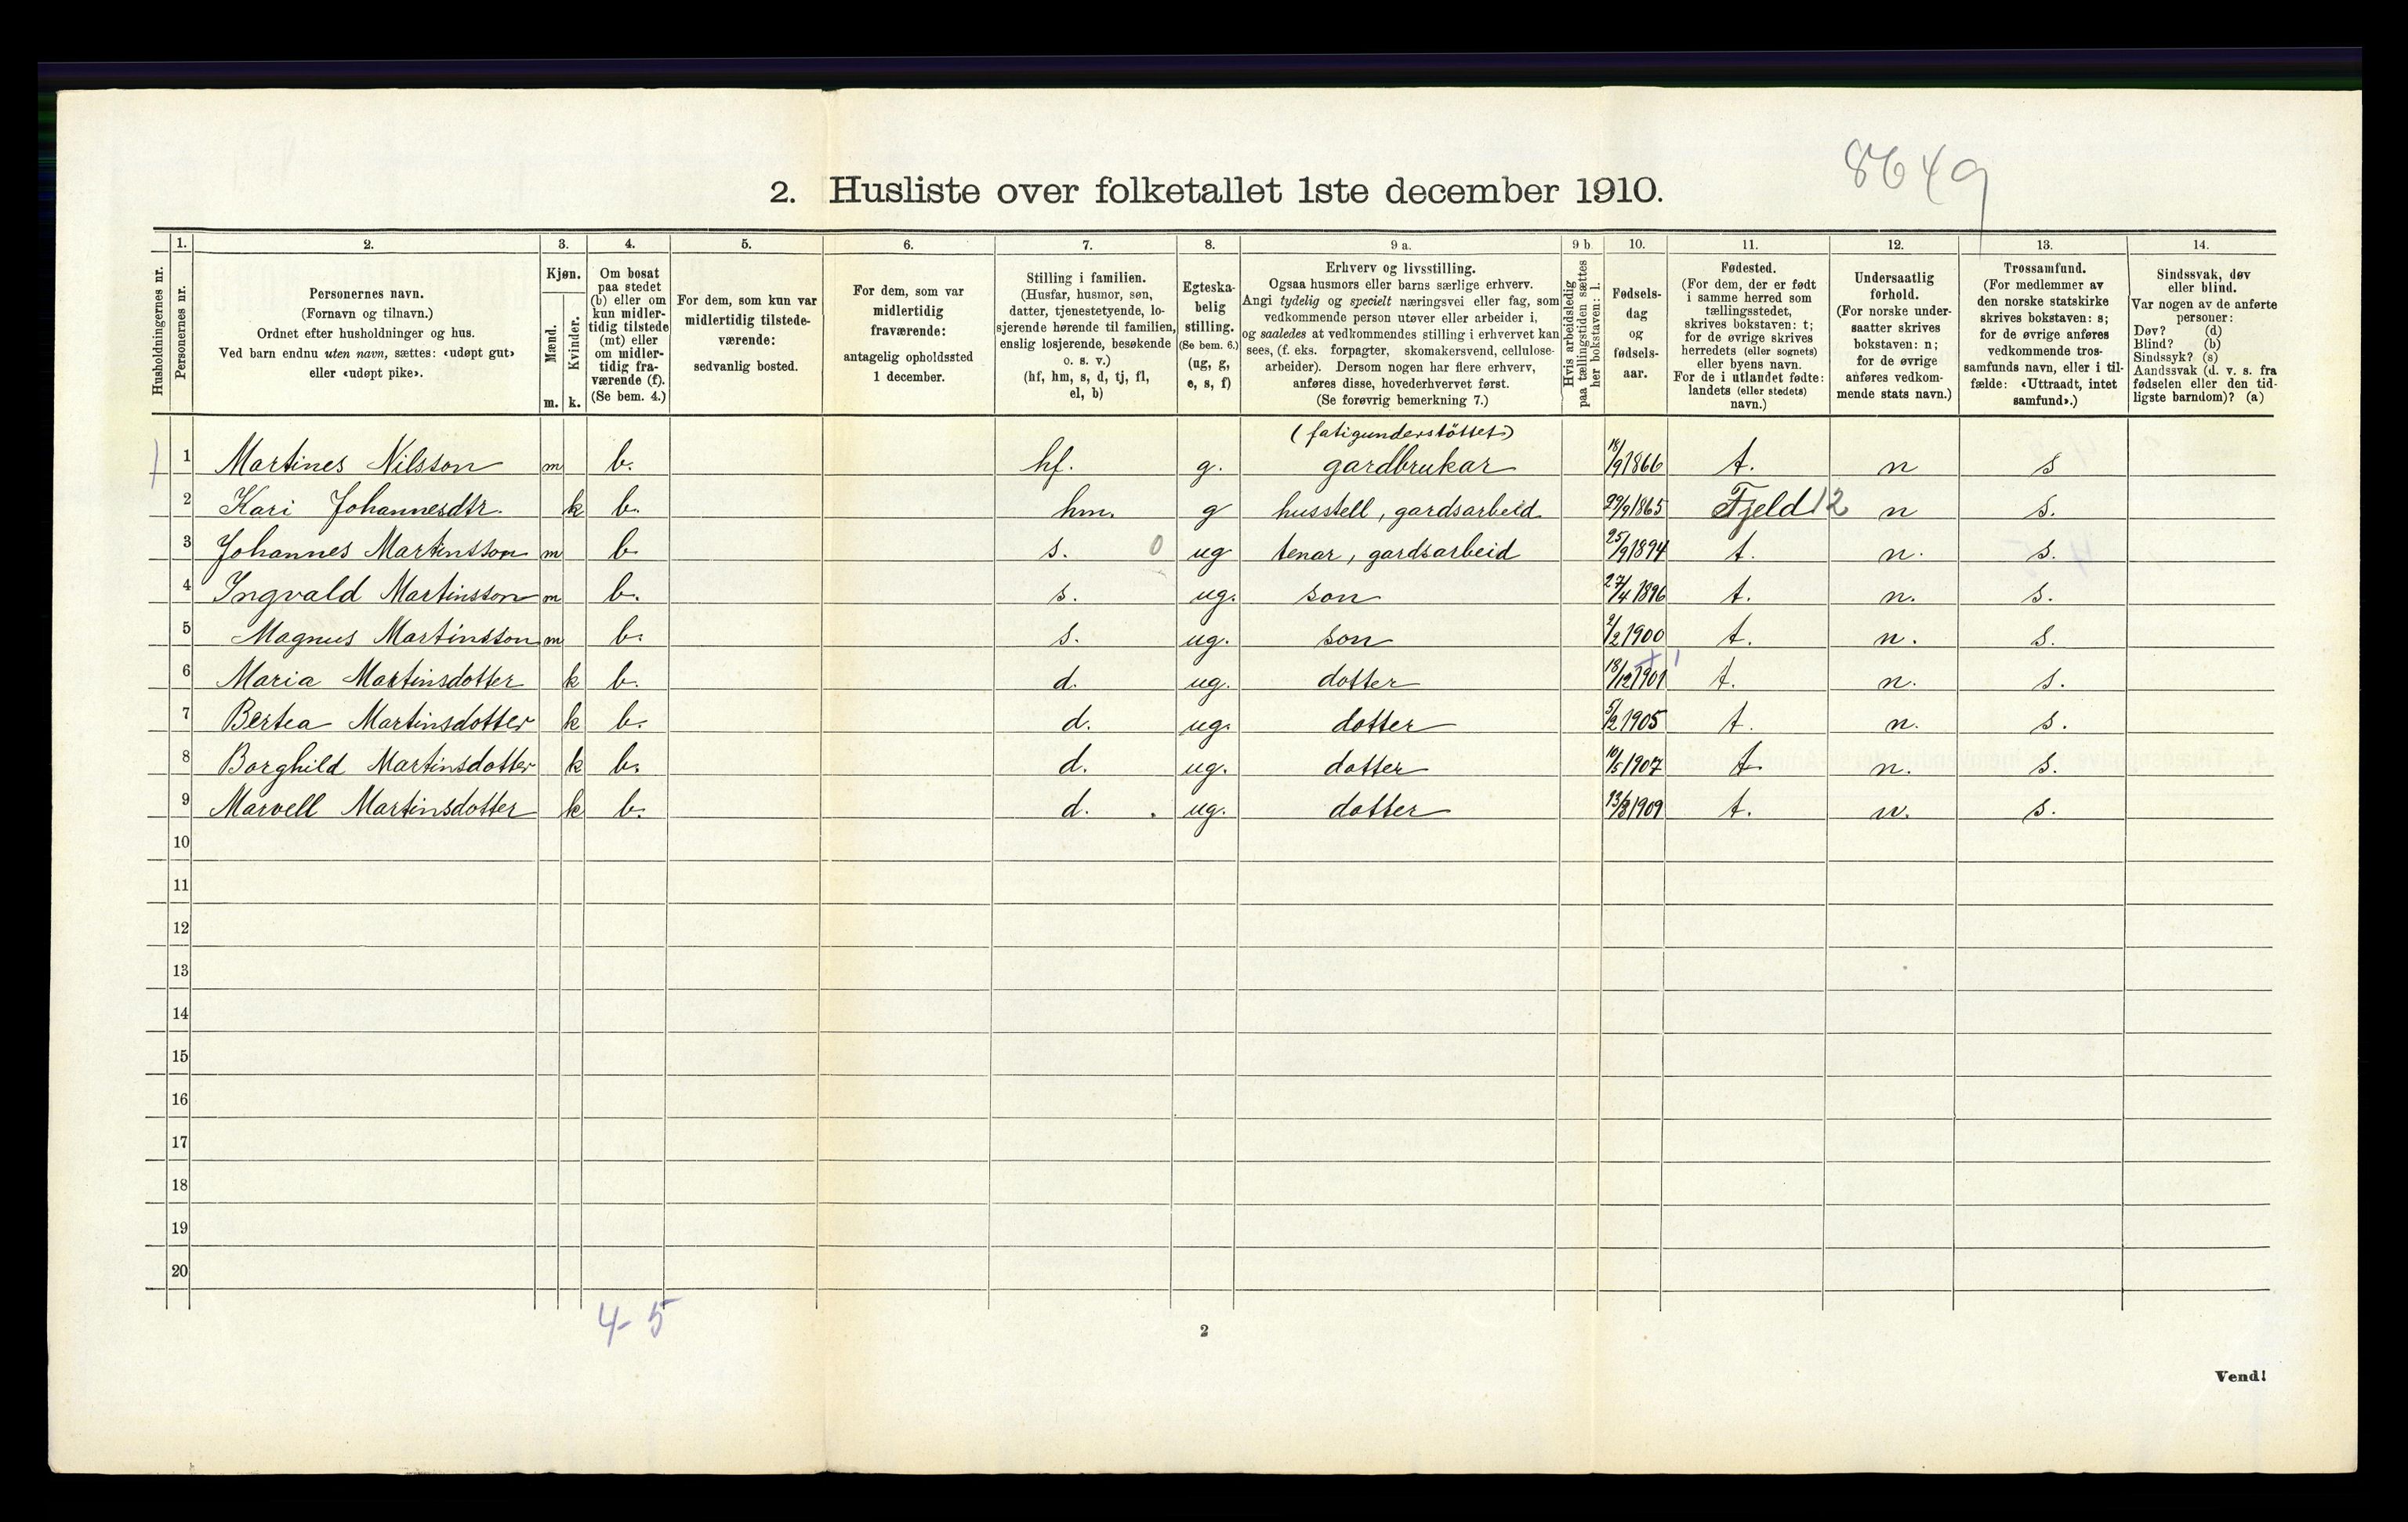 8649
2. Husliste over folketallet 1ste december 1910.
Husholdningernes nr.
1.
Personernes nr.
2.
Personernes navn.
(Fornavn og tilnavn.)
Ordnet efter husholdninger og hus.
Ved barn endnu uten navn, sættes: «udøpt gut»
eller «udøpt pike».
3.
Kjøn.
Mænd.
Kvinder.
m. k.
4.
Om bosat
paa stedet
(b) eller om
kun midler-
tidig tilstede
(mt) eller
om midler-
tidig fra-
værende (f).
(Se bem. 4.)
5.
For dem, som kun var
midlertidig tilstede-
værende:
sedvanlig bosted.
6.
For dem, som var
midlertidig
fraværende:
antagelig opholdssted
1 december.
7.
Stilling i familien.
(Husfar, husmor, søn,
datter, tjenestetyende, lo-
sjerende hørende til familien,
enslig losjerende, besøkende
o. s. v.)
(hf, hm, s, d, tj, fl,
el, b)
8.
Egteska-
belig
stilling.
(Se bem. 6.)
(ug, g,
e, s, f)
9 a.
Erhverv og livsstilling.
Ogsaa husmors eller barns særlige erhverv.
Angi tydelig og specielt næringsvei eller fag, som
vedkommende person utøver eller arbeider i,
og saaledes at vedkommendes stilling i erhvervet kan
sees, (f. eks. forpagter, skomakersvend, cellulose-
arbeider). Dersom nogen har flere erhverv,
anføres disse, hovederhvervet først.
(Se forøvrig bemerkning 7.)
9 b.
Hvis arbeidsledig
paa tællingstiden sættes
her bokstaven: l.
10.
Fødsels-
dag
og
fødsels-
aar.
11.
Fødested.
(For dem, der er født
i samme herred som
tællingsstedet,
skrives bokstaven: t;
for de øvrige skrives
herredets (eller sognets)
eller byens navn.
For de i utlandet fødte:
landets (eller stedets)
navn.)
12.
Undersaatlig
forhold.
(For norske under-
saatter skrives
bokstaven: n;
for de øvrige
anføres vedkom-
mende stats navn.)
13.
Trossamfund.
(For medlemmer av
den norske statskirke
skrives bokstaven: s;
for de øvrige anføres
vedkommende tros-
samfunds navn, eller i til-
fælde: «Uttraadt, intet
samfund».)
14.
Sindssvak, døv
eller blind.
Var nogen av de anførte
personer:
Døv? (d)
Blind? (b)
Sindssyk? (s)
Aandssvak (d. v. s. fra
fødselen eller den tid-
ligste barndom)? (a)
(fatigunderstöttet)
1 1 Martines Nilsson m b. hf. g. gardbrukar 18/9 1866 t. n s
2 Kari Johannesdtr. k b. hm. g husstell, gardsarbeid 29/9 1865 Fjeld 12 n s.
3 Johannes Martinsson m b s. 0 ug tenar, gardsarbeid 25/9 1894 t. n. s.
4 Ingvald Martinsson m b. s. ug. son 27/4 1896 t. n. s.
5 Magnus Martinsson m b. s. ug. son 2/2 1900 t. n. s.
6 Maria Martinsdotter k b. d. ug. dotter 18/12 1901 t. n. s.
7 Bertea Martinsdotter k b. d. ug. dotter 5/2 1905 t. n. s.
8 Borghild Martinsdotter k b. d. ug. dotter 10/5 1907 t. n. s.
9 Marvell Martinsdotter k b. d. ug. dotter 13/8 1909 t. n. s.
10
11
12
13
14
15
16
17
18
19
20
4-5
2
Vend!